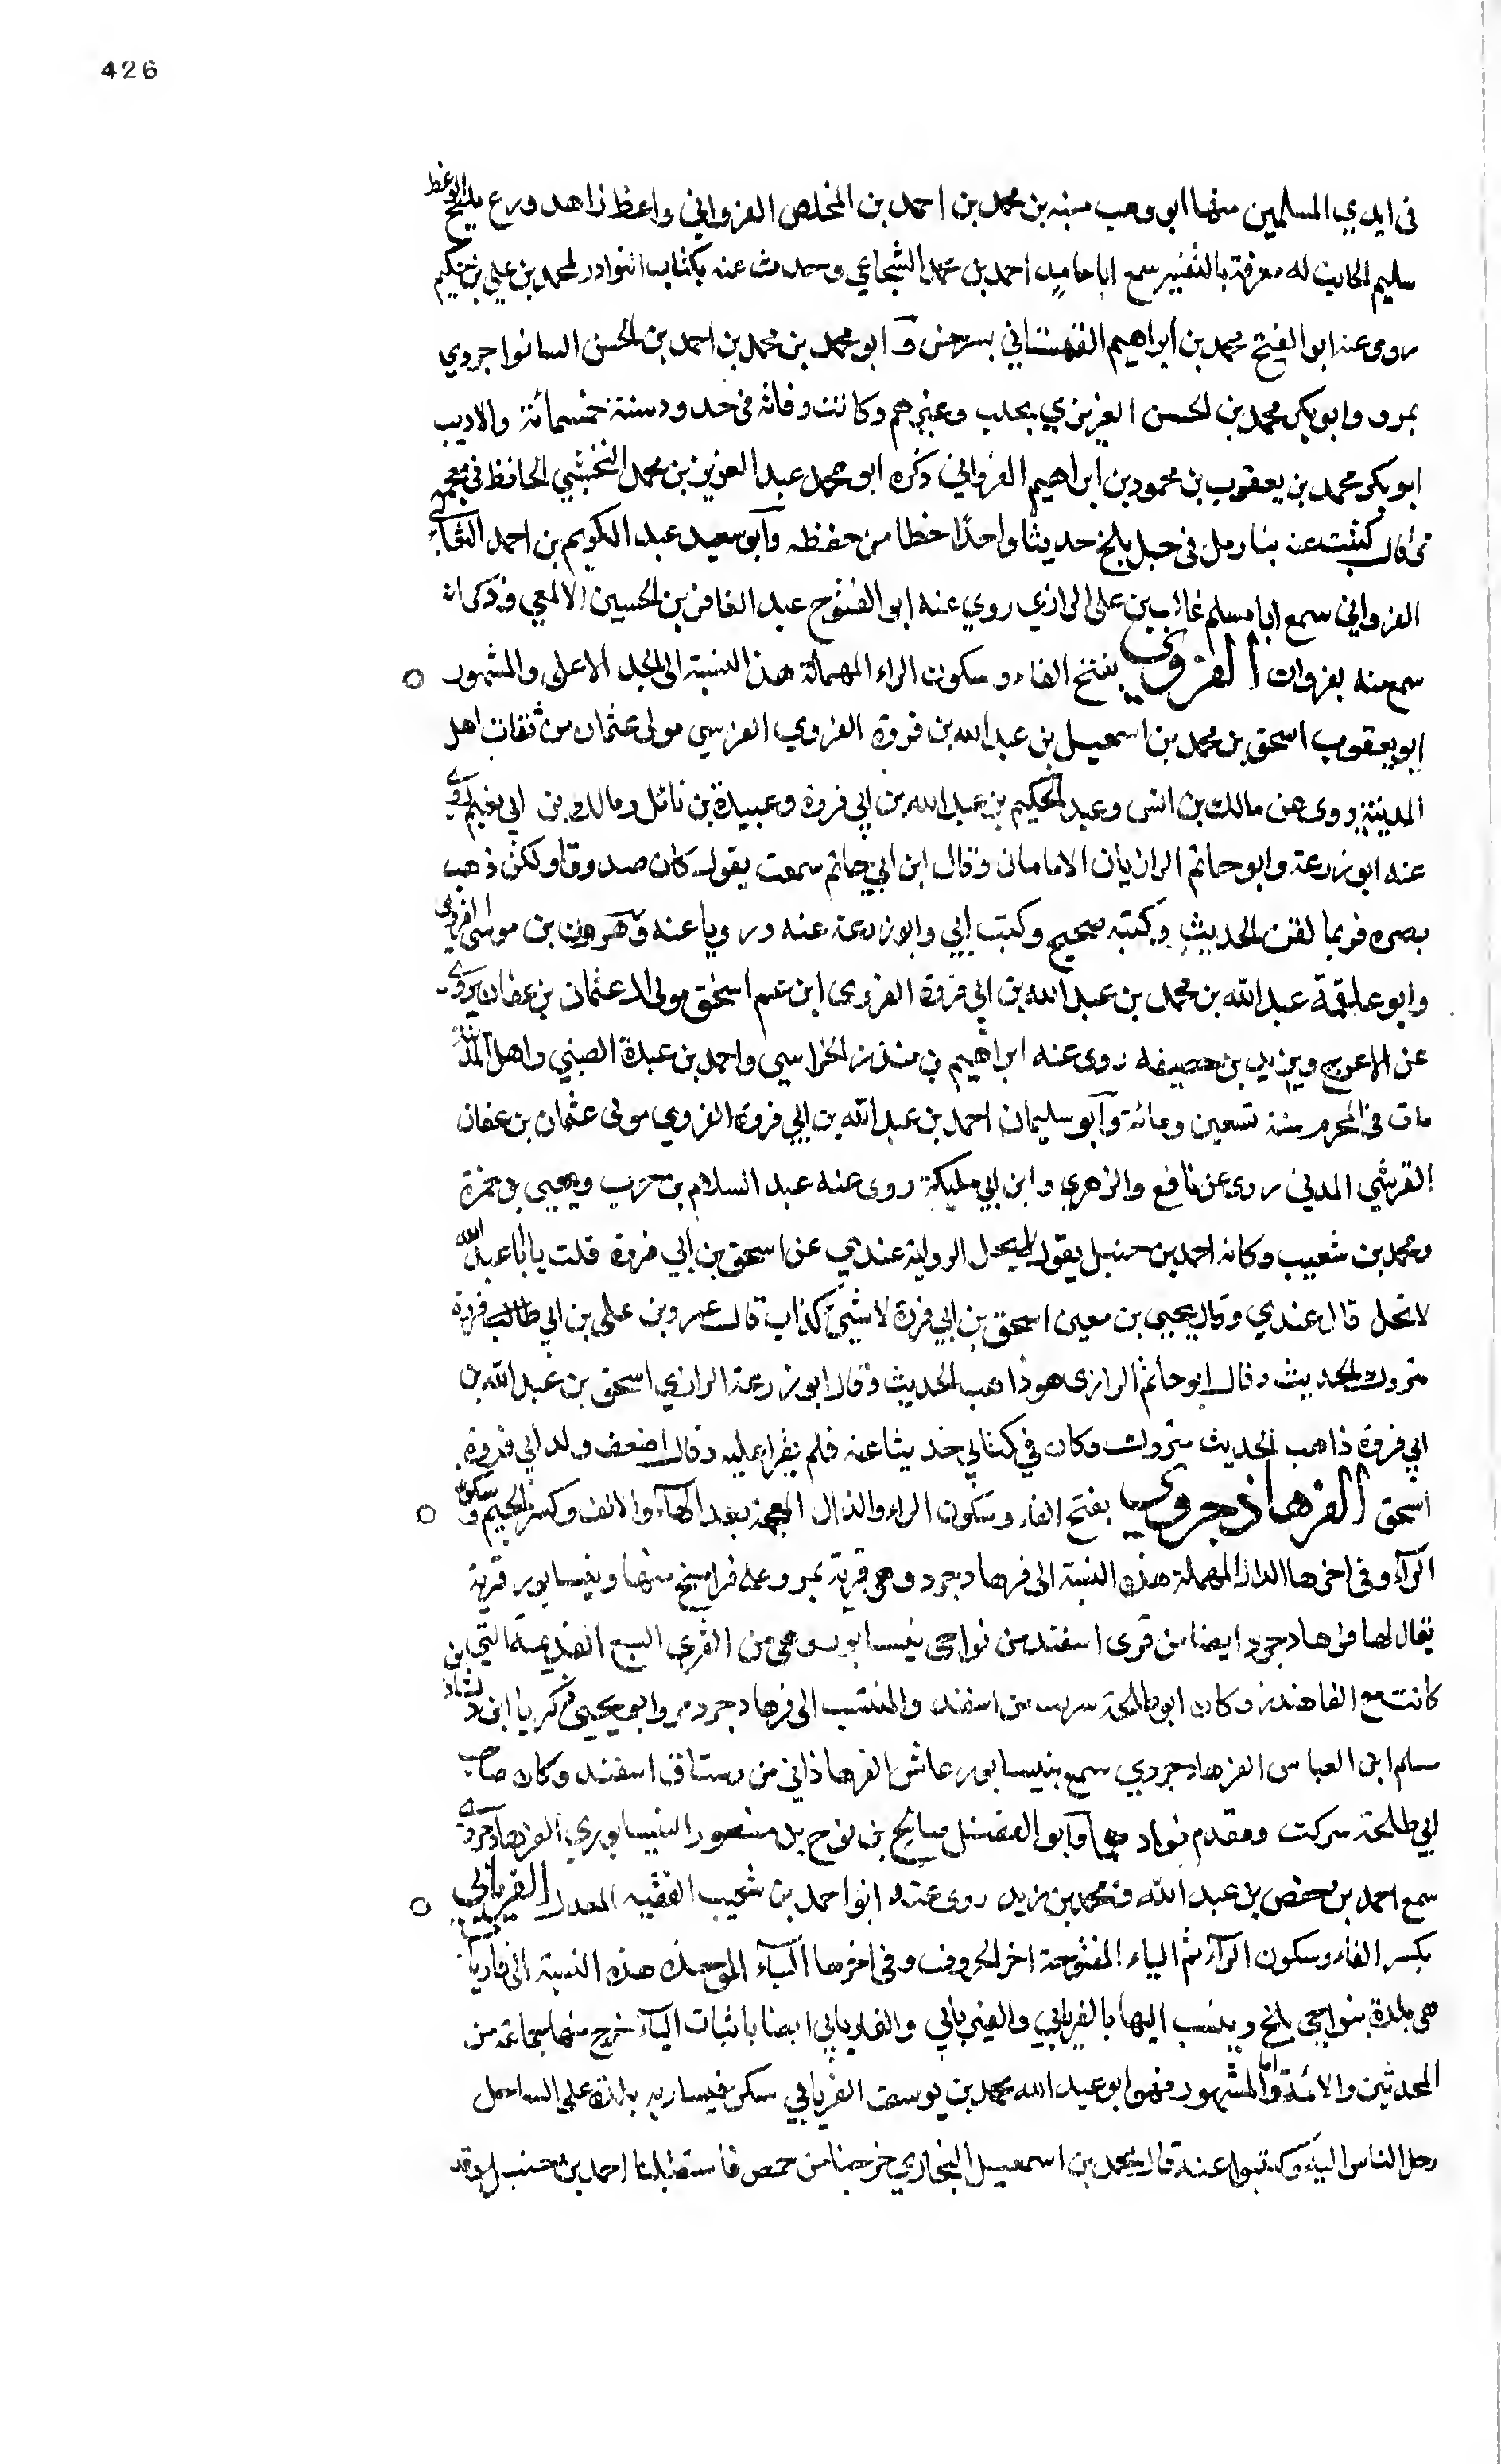 426
فى ايدي المسلمين منها ابو وهب منبه بن محمد بن احمد بن المخلص الفرواني واعظ زاهد ورع مليح الوعظ
سليم الجانب له معرفة بالتفسير سمع ابا حامد احمد بن محمد الشجاعي وحدث عنه بكتاب النوادر لمحمد بن علي بن حكيم
روى عنه ابو الفتح محمد بن ابراهيم القهستاني بسرخس وابو محمد بن محمد بن احمد بن الحسن السانواجردي
بمرو وابو بكر محمد بن الحسن العزيزي بحلب وغيرهم وكانت وفاته فى حدود سنة خمسمائة والاديب
ابو بكر محمد بن يعقوب بن محمود بن ابراهيم الفرواني ذكره ابو محمد عبد العزيز بن محمد النخشبي الحافظ فى معجمه
قال كتبت عنه فى جبل بلخ حديثا واحدا خطا من حفظه وابو سعيد عبد الكريم بن احمد
الفرواني سمع ابا مسلم غالب بن على الرازي روي عنه ابو الفتوح عبد الغافر بن الحسين الالمعي وذكر انه
سمع منه بفروان الفروي بفتح الفاء وسكون الراء المهملة هذا النسبة الى الجد الاعلى والمشهور
ابو يعقوب اسحق بن محمد بن اسمعيل بن عبد الله بن فروة الفروي القرسي مولى عثمان من ثقات اهل
المدينة روى عن مالك بن انس وعبد الحكيم بن عبد الله بن ابي فروة وعبيدة بن نائل ومالك بن ابي نعيم روى
عنه ابو زرعة وابو حاتم الرازيان الامامان وقال ابن ابي حاتم سمعت يقول كان صدوقا ولكن ذهب
بصره فربما لقن الحديث وكتبه صحيح وكتب ابي وابو زرعة عنه ورويا عنه وهرون بن موسى الفروي
وابو علقمة عبد الله بن محمد بن عبد الله بن ابي فروة الفروي ابن عم اسحق مولى ال عثمان بن عفان يروى
عن الاعرج ويزيد بن حصيفه روى عنه ابراهيم بن منذر الحزامي واحمد بن عبدة الضبي واهل المدينة
مات فى المحرم سنة تسعين ومائة وابو سليمان احمد بن عبد الله بن ابي فروة الفروي مولى عثمان بن عفان
القرشي المدني روى عن نافع والزهري وابن ابي مليكة روى عنه عبد السلام بن حرب ويحيى بن حمزة
ومحمد بن شعيب وكان احمد بن حنبل يقول لا يحل الرواية عندي عن اسحق بن ابي فروة قلت يا ابا عبد الله
لا تحل قال عندي وقال يحيى بن معين اسحق بن ابي فروة لا شيئ كذاب قال عمرو بن على بن ابي طالب فروة
متروك الحديث وقال ابو حاتم الرازى هو ذاهب الحديث وقال ابو زرعة الرازي اسحق بن عبد الله بن
ابي فروة ذاهب الحديث متروك وكان في كتابي حديثا عنه فلم يقرا عليه وقال اضعف ولد ابي فروة
اسحق الفرهاذجردي بفتح الفاء وسكون الراء والذال المعجمة بعد الهاء والالف وكسر الجيم وسكون
الراء وفى اخرها الدال المهملة هذه النسبة الى فرهادجرد وهى قرية بمرو على فراسخ منها وبنيسابور قرية
يقال لها فرهادجرد ايضا من قرى اسفند من نواحى نيسابور وهى من القرى السبع القديمة التي
كانت مع القاهندز وكان ابو طلحة سركب من اسفند والمنتسب الى فرهادجرد مرو ابو يحيى زكريا ابن
مسلم ابى العباس الفرهادجردي سمع بنيسابور الفرهاذاني من رستاق اسفند وكان صاحب
ابي طلحة سركب ومقدم قواد وابو الفضل صالح بن نوح بن منصور النيسابوري الفرهادجردي
سمع احمد بن حفص بن عبد الله ومحمد بن يزيد روى عنه ابو احمد بن شعيب الفقيه المعدل الفريابي
بكسر الفاء وسكون الراء ثم الياء المفتوحة اخر الحروف وفى اخرها الباء الموحدة هذه النسبة الى فارياب
هى بلدة بنواحى بلخ وينسب اليها بالفريابي والفيريابي والفاريابي ايضا باثبات الياء خرج منها جماعة من
المحدثين والائمة واما المشهور منها ابو عبد الله محمد بن يوسف الفريابي سكن قيسارية بلدة على الساحل
رحل الناس اليه وكتبوا عنه قال محمد بن اسمعيل البخاري خرجنا من حمص فاستقبلنا احمد بن حنبل وقد